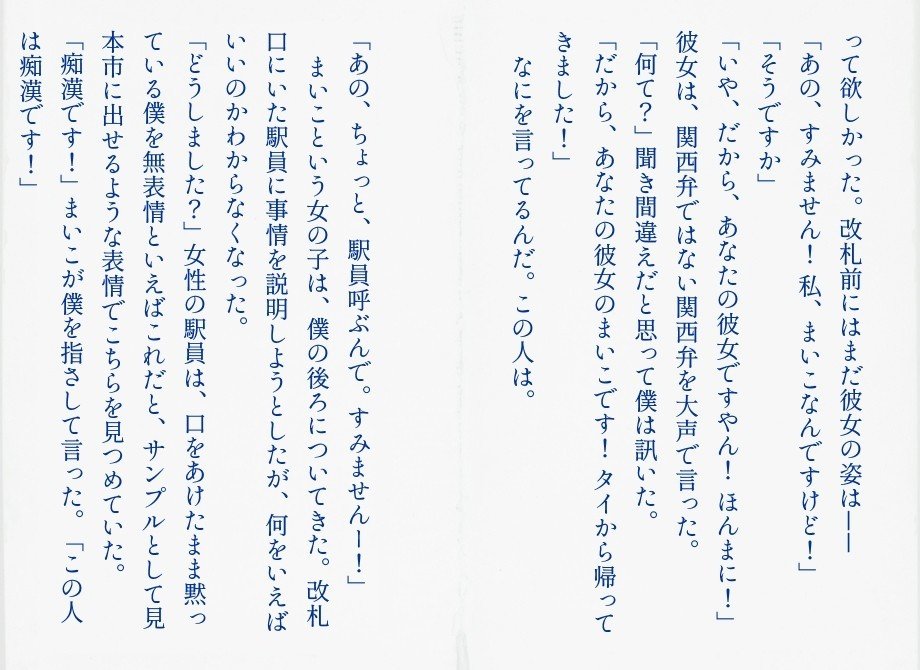 って欲しかった。改札前にはまだ彼女の姿は――
「あの、すみません！ 私、まいこなんですけど！」
「そうですか」
「いや、だから、あなたの彼女ですやん！ ほんまに！」
彼女は、関西弁ではない関西弁を大声で言った。
「何て？」聞き間違えだと思って僕は訊いた。
「だから、あなたの彼女のまいこです！ タイから帰って
きました！」
なにを言ってるんだ。この人は。
「あの、ちょっと、駅員呼ぶんで。すみませんー！」
まいこという女の子は、僕の後ろについてきた。改札
口にいた駅員に事情を説明しようとしたが、何をいえば
いいのかわからなくなった。
「どうしました？」女性の駅員は、口をあけたまま黙っ
ている僕を無表情といえばこれだと、サンプルとして見
本市に出せるような表情でこちらを見つめていた。
「痴漢です！」まいこが僕を指さして言った。「この人
は痴漢です！」